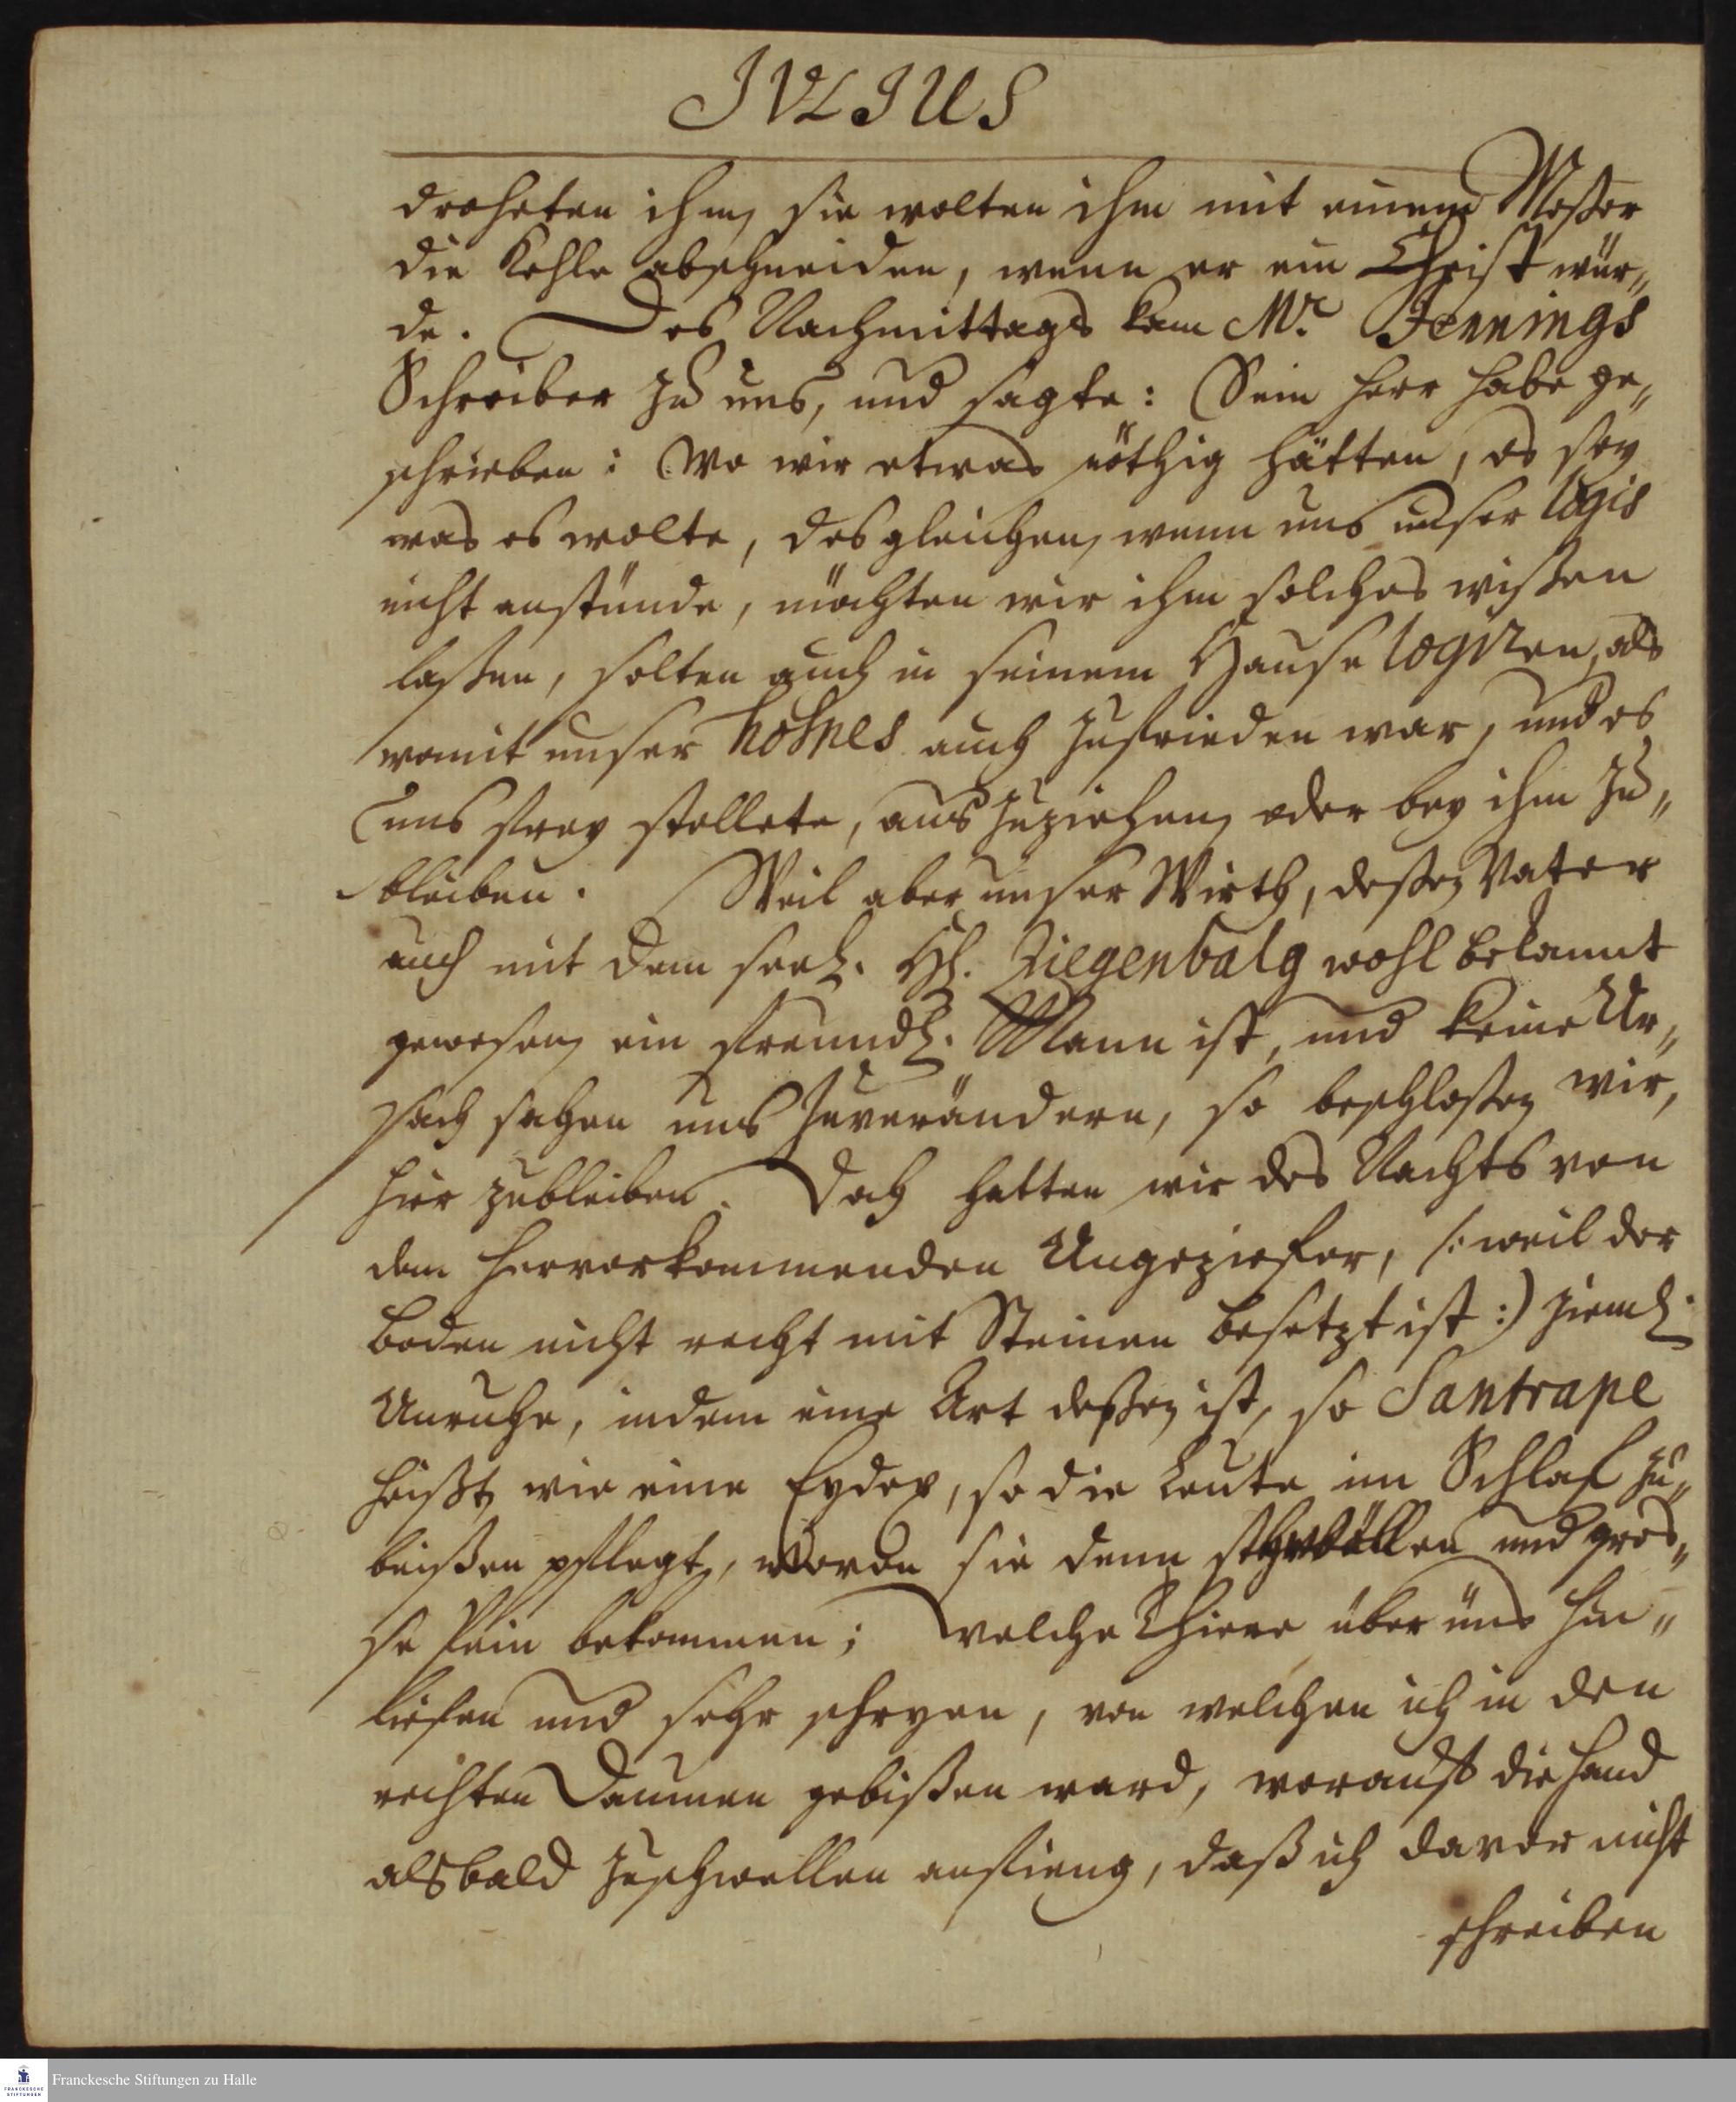 JVLIUS
droheten ihm, sie wolten ihm mit einem Meßer
die Kehle abschneiden, wenn er ein Christ wür„
de. Des Nachmittags kam Mr. Jennings
Schreiber zu uns, und sagte: Sein Herr habe ge„
schrieben: Wo wir etwas nöthig hätten, es sey
was es wolte, desgleichen, wenn uns unser logis
nicht anstünde, möchten wir ihm solches wißen
laßen, solten auch in seinem Hause logiren, als
womit unser auch zufrieden war, und es
uns frey stellete, auszuziehen, oder bey ihm zu„
bleiben. Weil aber unser Wirth, deßen Vater
auch mit dem seel. H. Ziegenbalg wohl bekannt
gewesen, ein freundl. Mann ist, und keine Ur„
sach sahen uns zuverändern, so beschloßen wir,
hier zubleiben. Doch hatten wir des Nachts von
dem hervorkommenden Ungeziefer, /: weil der
Boden nicht recht mit Steinen besetzt ist :) zieml.
Unruhe, indem eine Art deßen ist, so Santrape
heißt, wie eine Eydex, so die Leute im Schlaf zu„
beißen pflegt, wovon sie denn und gros„
se Pein bekommen; welche Thiere über uns hin„
liefen und sehr schryen, von welchen ich in den
rechten Daumen gebißen ward, worauf die Hand
alsbald zuschwellen anfieng, daß ich davor nicht
schreiben
Franckesche Stiftungen zu Halle
FRANCKESCHE
STIFTUNGEN